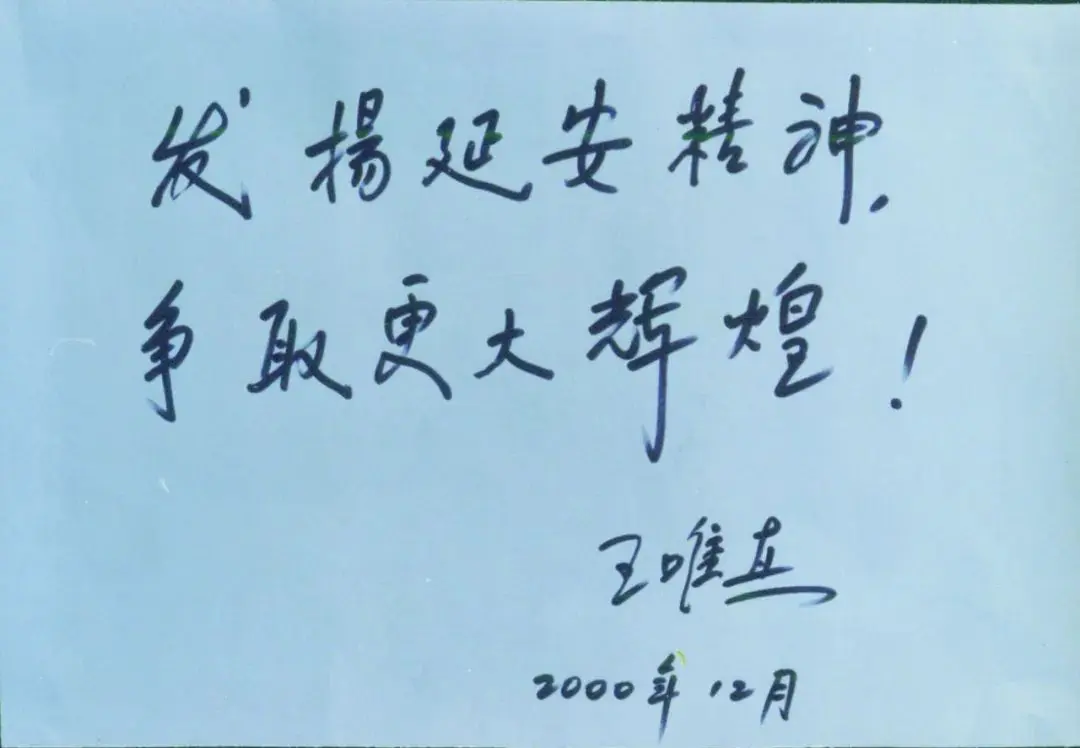 发揚延安精神.
争取更大辉煌!
王唯真
2000年12月